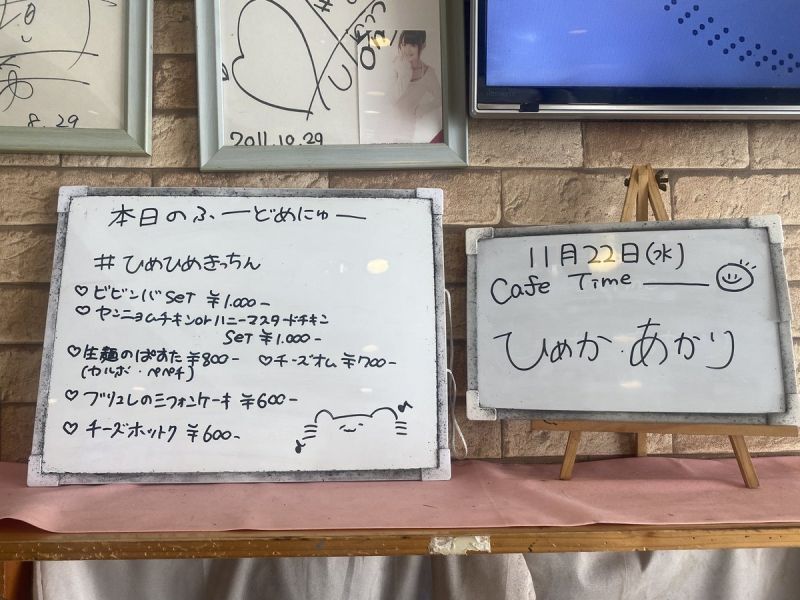 8.29
2011.10.29
本日のふーどめにゅー
#ひめひめきっちん
♡ビビンバSET ¥1.000-
♡ヤンニョムチキンorハニーマスタードチキン
SET ¥1.000-
♡生麺のぱすた ¥800- ♡チーズオム ¥700-
(カルボ・ペペチ)
♡ブリュレのミフォンケーキ ¥600-
♡チーズホットク ¥600-
11月22日(水)
Cafe Time
ひめか・あかり